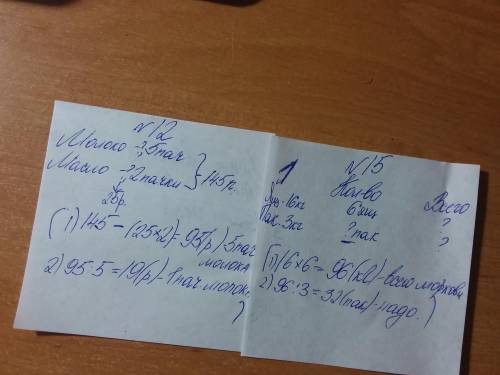 N12
Молоко - ? 5 пач
Масло - ? 2 пачки } - 145 р.
25р.
1) 145 - (25×2) = 95(р) - 5 пач молока
2) 95:5 = 19(р) - 1 пач молока
N15
1 Кол-во Всего
16кг 6 ящ ?
Пак. 3кг ? пак ?
1) 16×6 = 96(кг) - всего моркови
2) 96:3 = 32(пак) - надо.